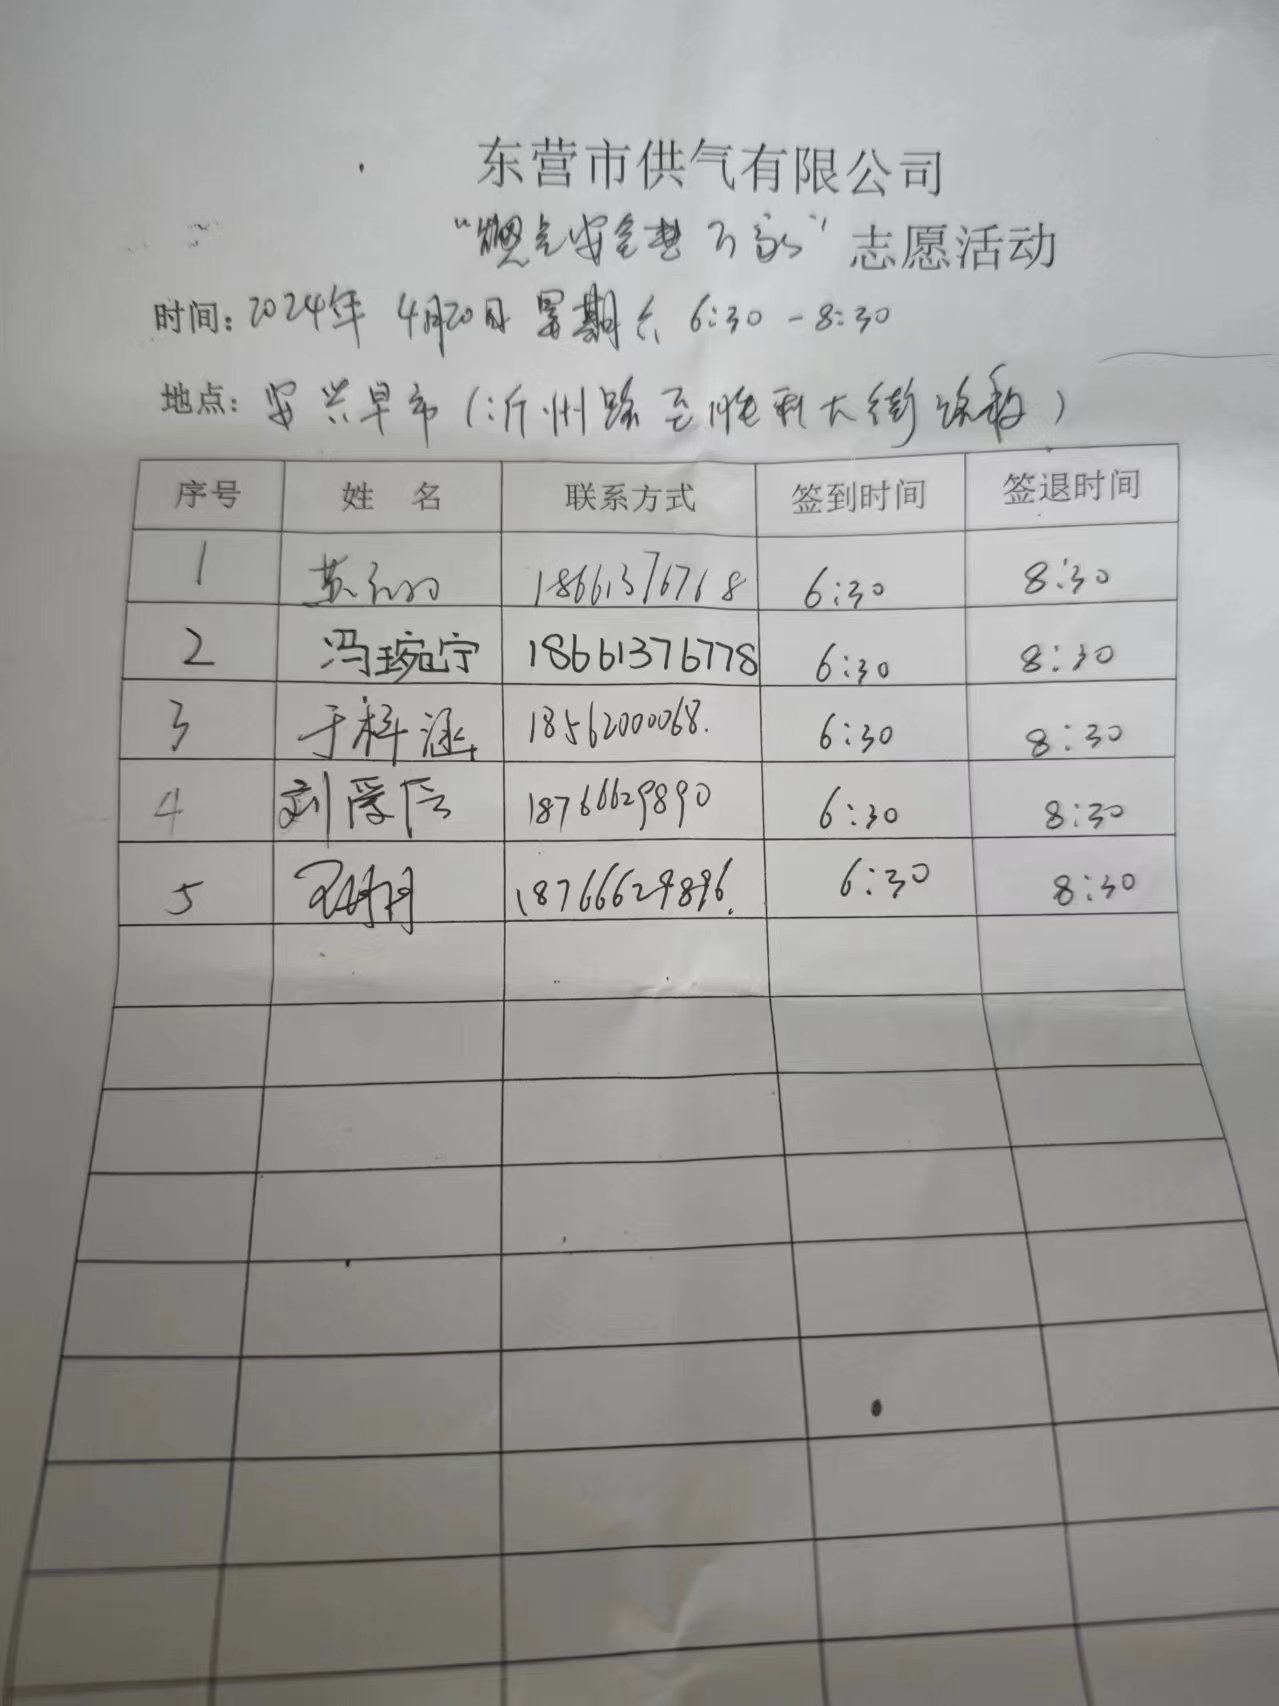 东营市供气有限公司
“燃气安全进万家”志愿活动
时间：2024年 4月20日 星期六 6:30-8:30
地点：安兴早市（沂州路至胜利大街路段）
序号 姓 名 联系方式 签到时间 签退时间
1 18661376768 6:30 8:30
2 冯琬宁 18661376778 6:30 8:30
3 于梓涵 18562000068. 6:30 8:30
4 刘 18766629890 6:30 8:30
5 18766629896. 6:30 8:30